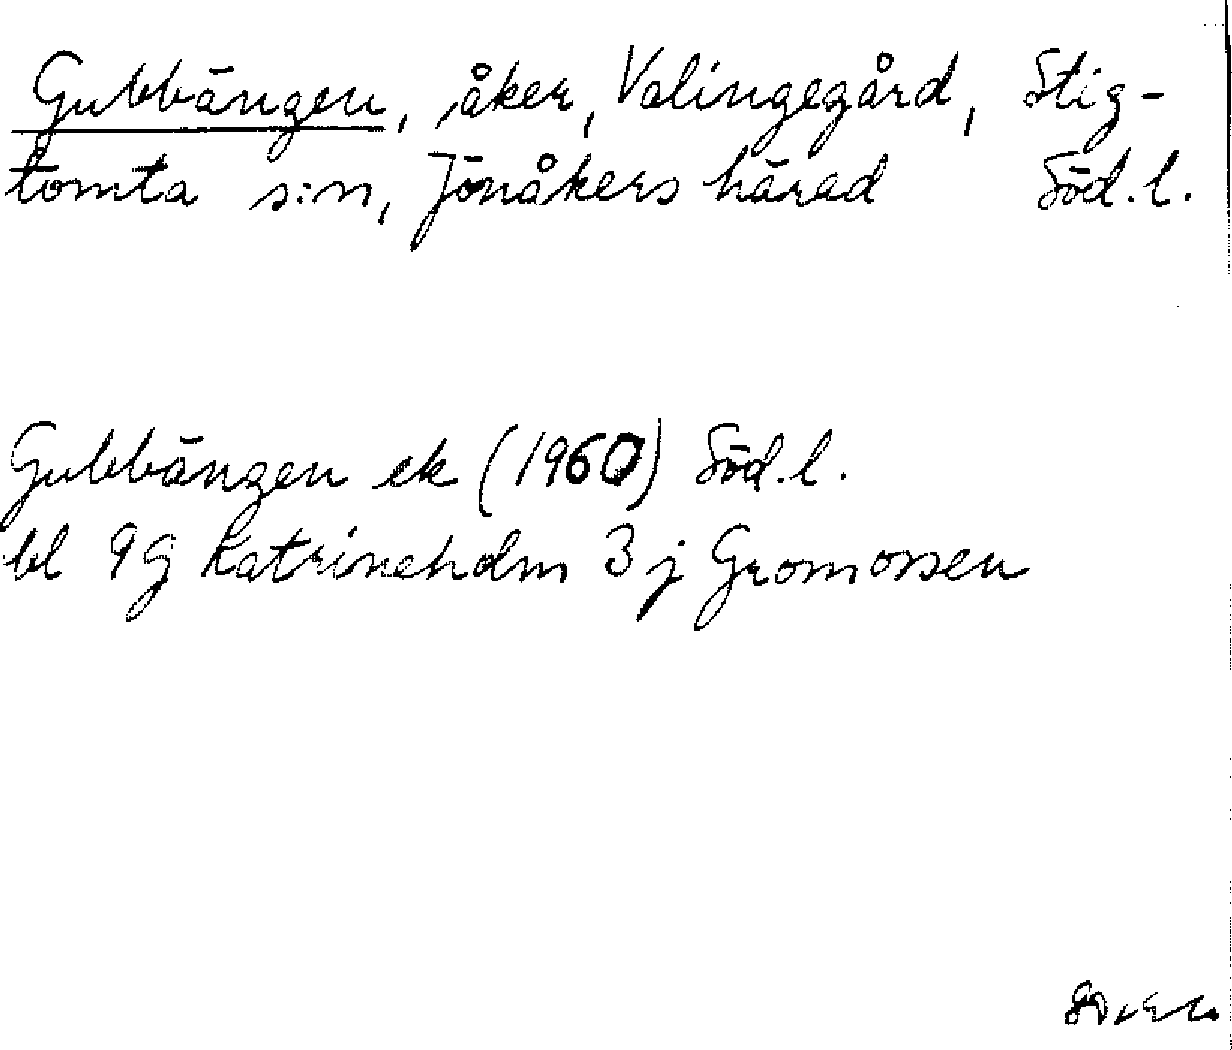 Gubbängen, åker, Valingegård, Stig-
tomta s:n, Jönåkers härad Söd.l.
Gubbängen ek (1960) Söd.l.
bl 9G Katrineholm 3j Gromossen